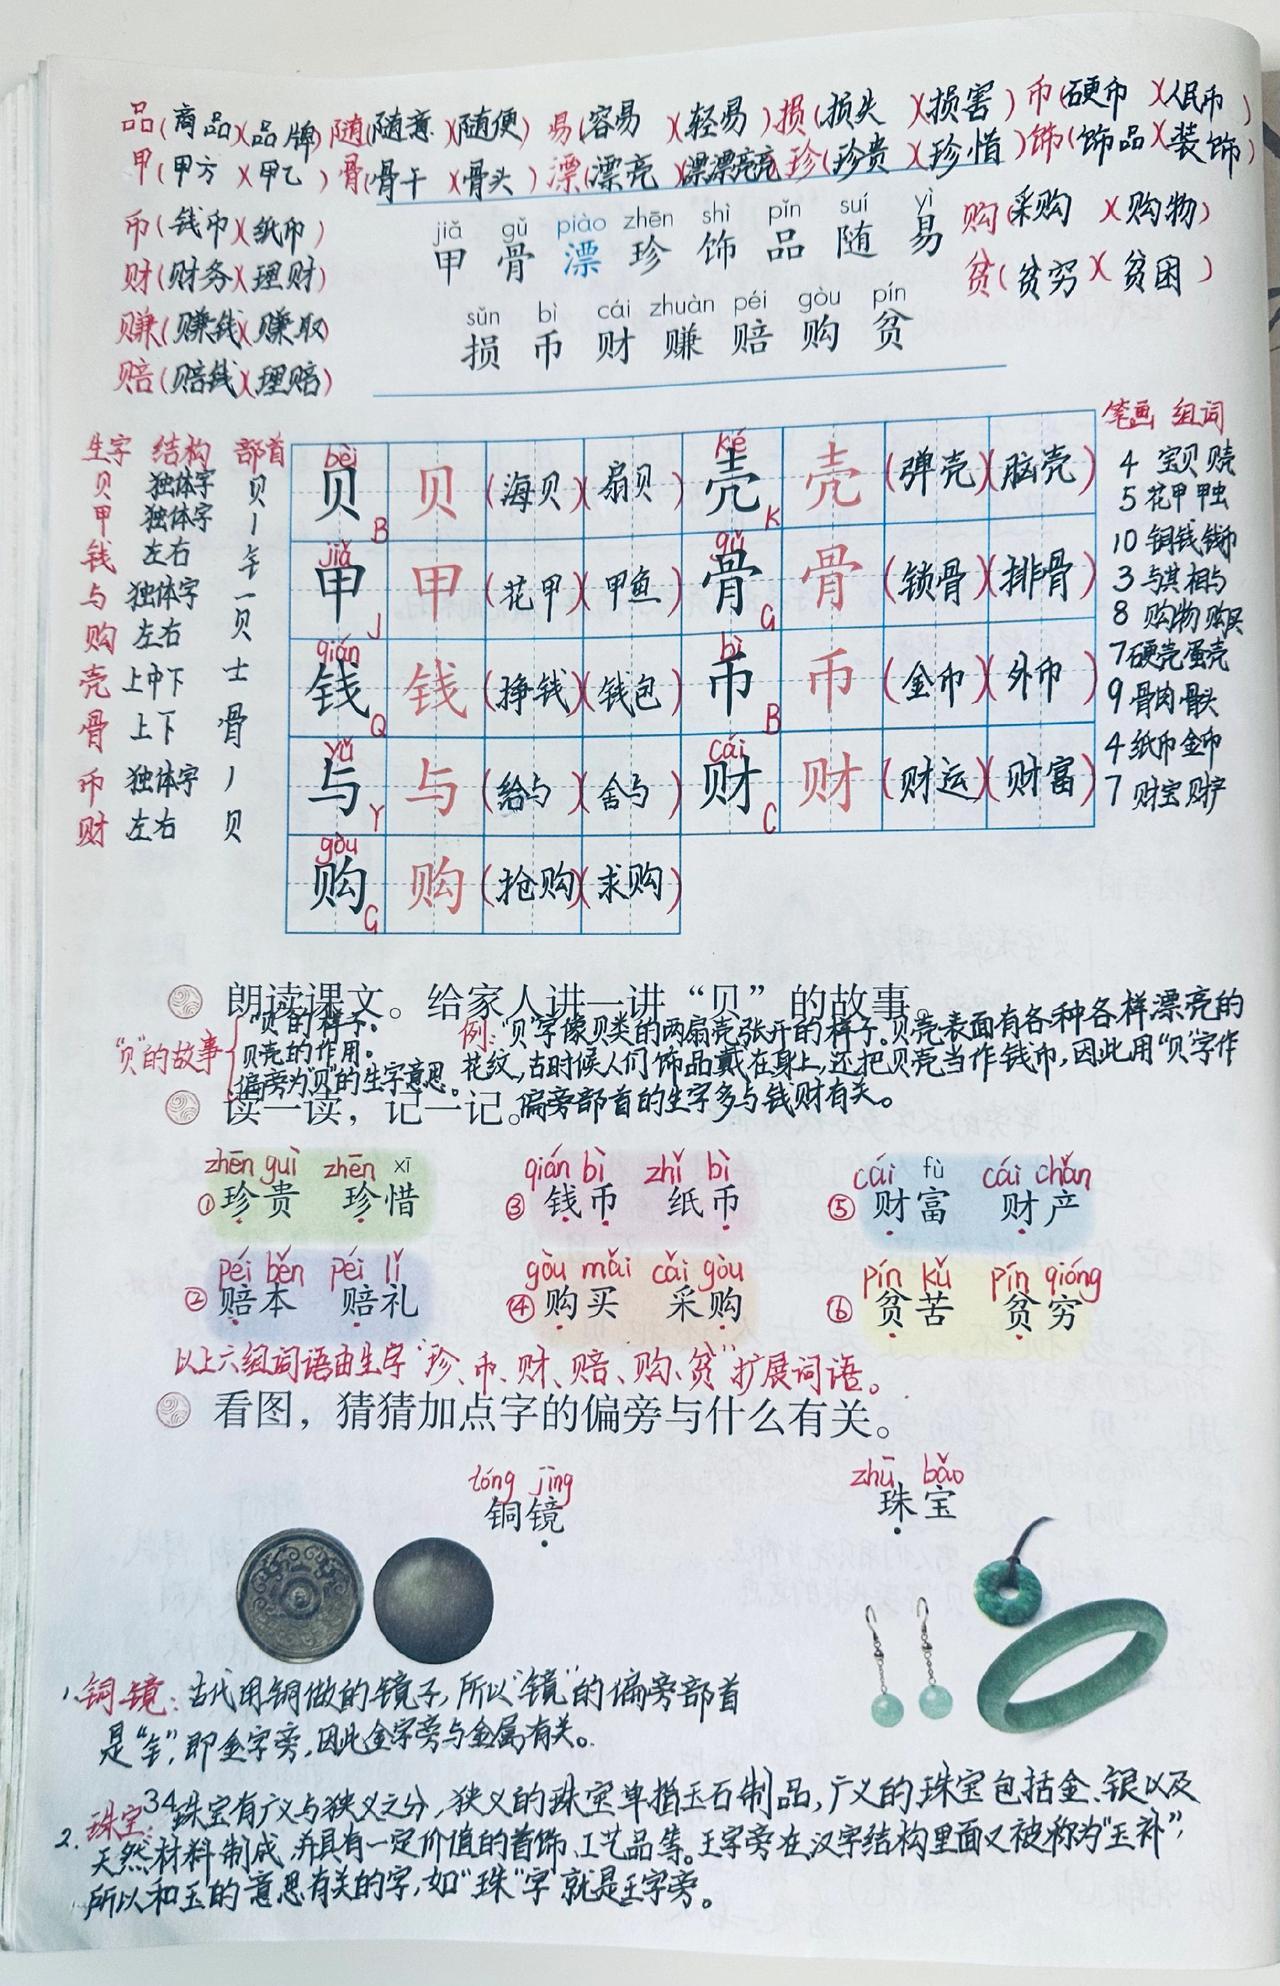 品(商品)(品牌) 随(随意)(随便) 易(容易)(轻易) 损(损失)(损害) 币(硬币)(人民币)
甲(甲方)(甲乙) 骨(骨干)(骨头) 漂(漂亮)(漂漂亮亮) 珍(珍贵)(珍惜) 饰(饰品)(装饰)
币(钱币)(纸币)
财(财务)(理财)
赚(赚钱)(赚取)
赔(赔钱)(理赔)
jiǎ gǔ piào zhēn shì pǐn suí yì
甲 骨 漂 珍 饰 品 随 易
sǔn bì cái zhuàn péi gòu pín
损 币 财 赚 赔 购 贫
购(采购)(购物)
贫(贫穷)(贫困)
生字 结构 部首
贝 独体字 贝
甲 独体字 丨
钱 左右 钅
与 独体字 一
购 左右 贝
壳 上中下 士
骨 上下 骨
币 独体字 丿
财 左右 贝
bèi ké
贝 B 贝 (海贝)(扇贝) 壳 K 壳 (弹壳)(脑壳)
jiǎ gǔ
甲 J 甲 (花甲)(甲鱼) 骨 G 骨 (锁骨)(排骨)
qián bì
钱 Q 钱 (挣钱)(钱包) 币 B 币 (金币)(外币)
yǔ cái
与 Y 与 (给与)(舍与) 财 C 财 (财运)(财富)
gòu
购 G 购 (抢购)(求购)
笔画 组词
4 宝贝 贝壳
5 花甲 甲虫
10 铜钱 钱币
3 与其 相与
8 购物 购买
7 硬壳 蛋壳
9 骨肉 骨头
4 纸币 金币
7 财宝 财产
朗读课文。给家人讲一讲“贝”的故事。
“贝”的故事
“贝”的样子、
贝壳的作用。
偏旁为“贝”的生字意思。
例：“贝”字像贝类的两扇壳张开的样子。贝壳表面有各种各样漂亮的
花纹，古时候人们饰品戴在身上，还把贝壳当作钱币，因此用“贝”字作
偏旁部首的生字多与钱财有关。
读一读，记一记。
zhēn guì zhēn xī qián bì zhǐ bì cái fù cái chǎn
①珍贵 珍惜 ③钱币 纸币 ⑤财富 财产
péi běn péi lǐ gòu mǎi cǎi gòu pín kǔ pín qióng
②赔本 赔礼 ④购买 采购 ⑥贫苦 贫穷
以上六组词语由生字“珍、币、财、赔、购、贫”扩展词语。
看图，猜猜加点字的偏旁与什么有关。
tóng jìng zhū bǎo
铜镜 珠宝
1、铜镜：古代用铜做的镜子，所以“镜”的偏旁部首
是“钅”，即金字旁，因此金字旁与金属有关。
34
2、珠宝：珠宝有广义与狭义之分，狭义的珠宝单指玉石制品，广义的珠宝包括金、银以及
天然材料制成，并具有一定价值的首饰、工艺品等。王字旁在汉字结构里面又被称为“玉补”，
所以和玉的意思有关的字，如“珠”字就是王字旁。